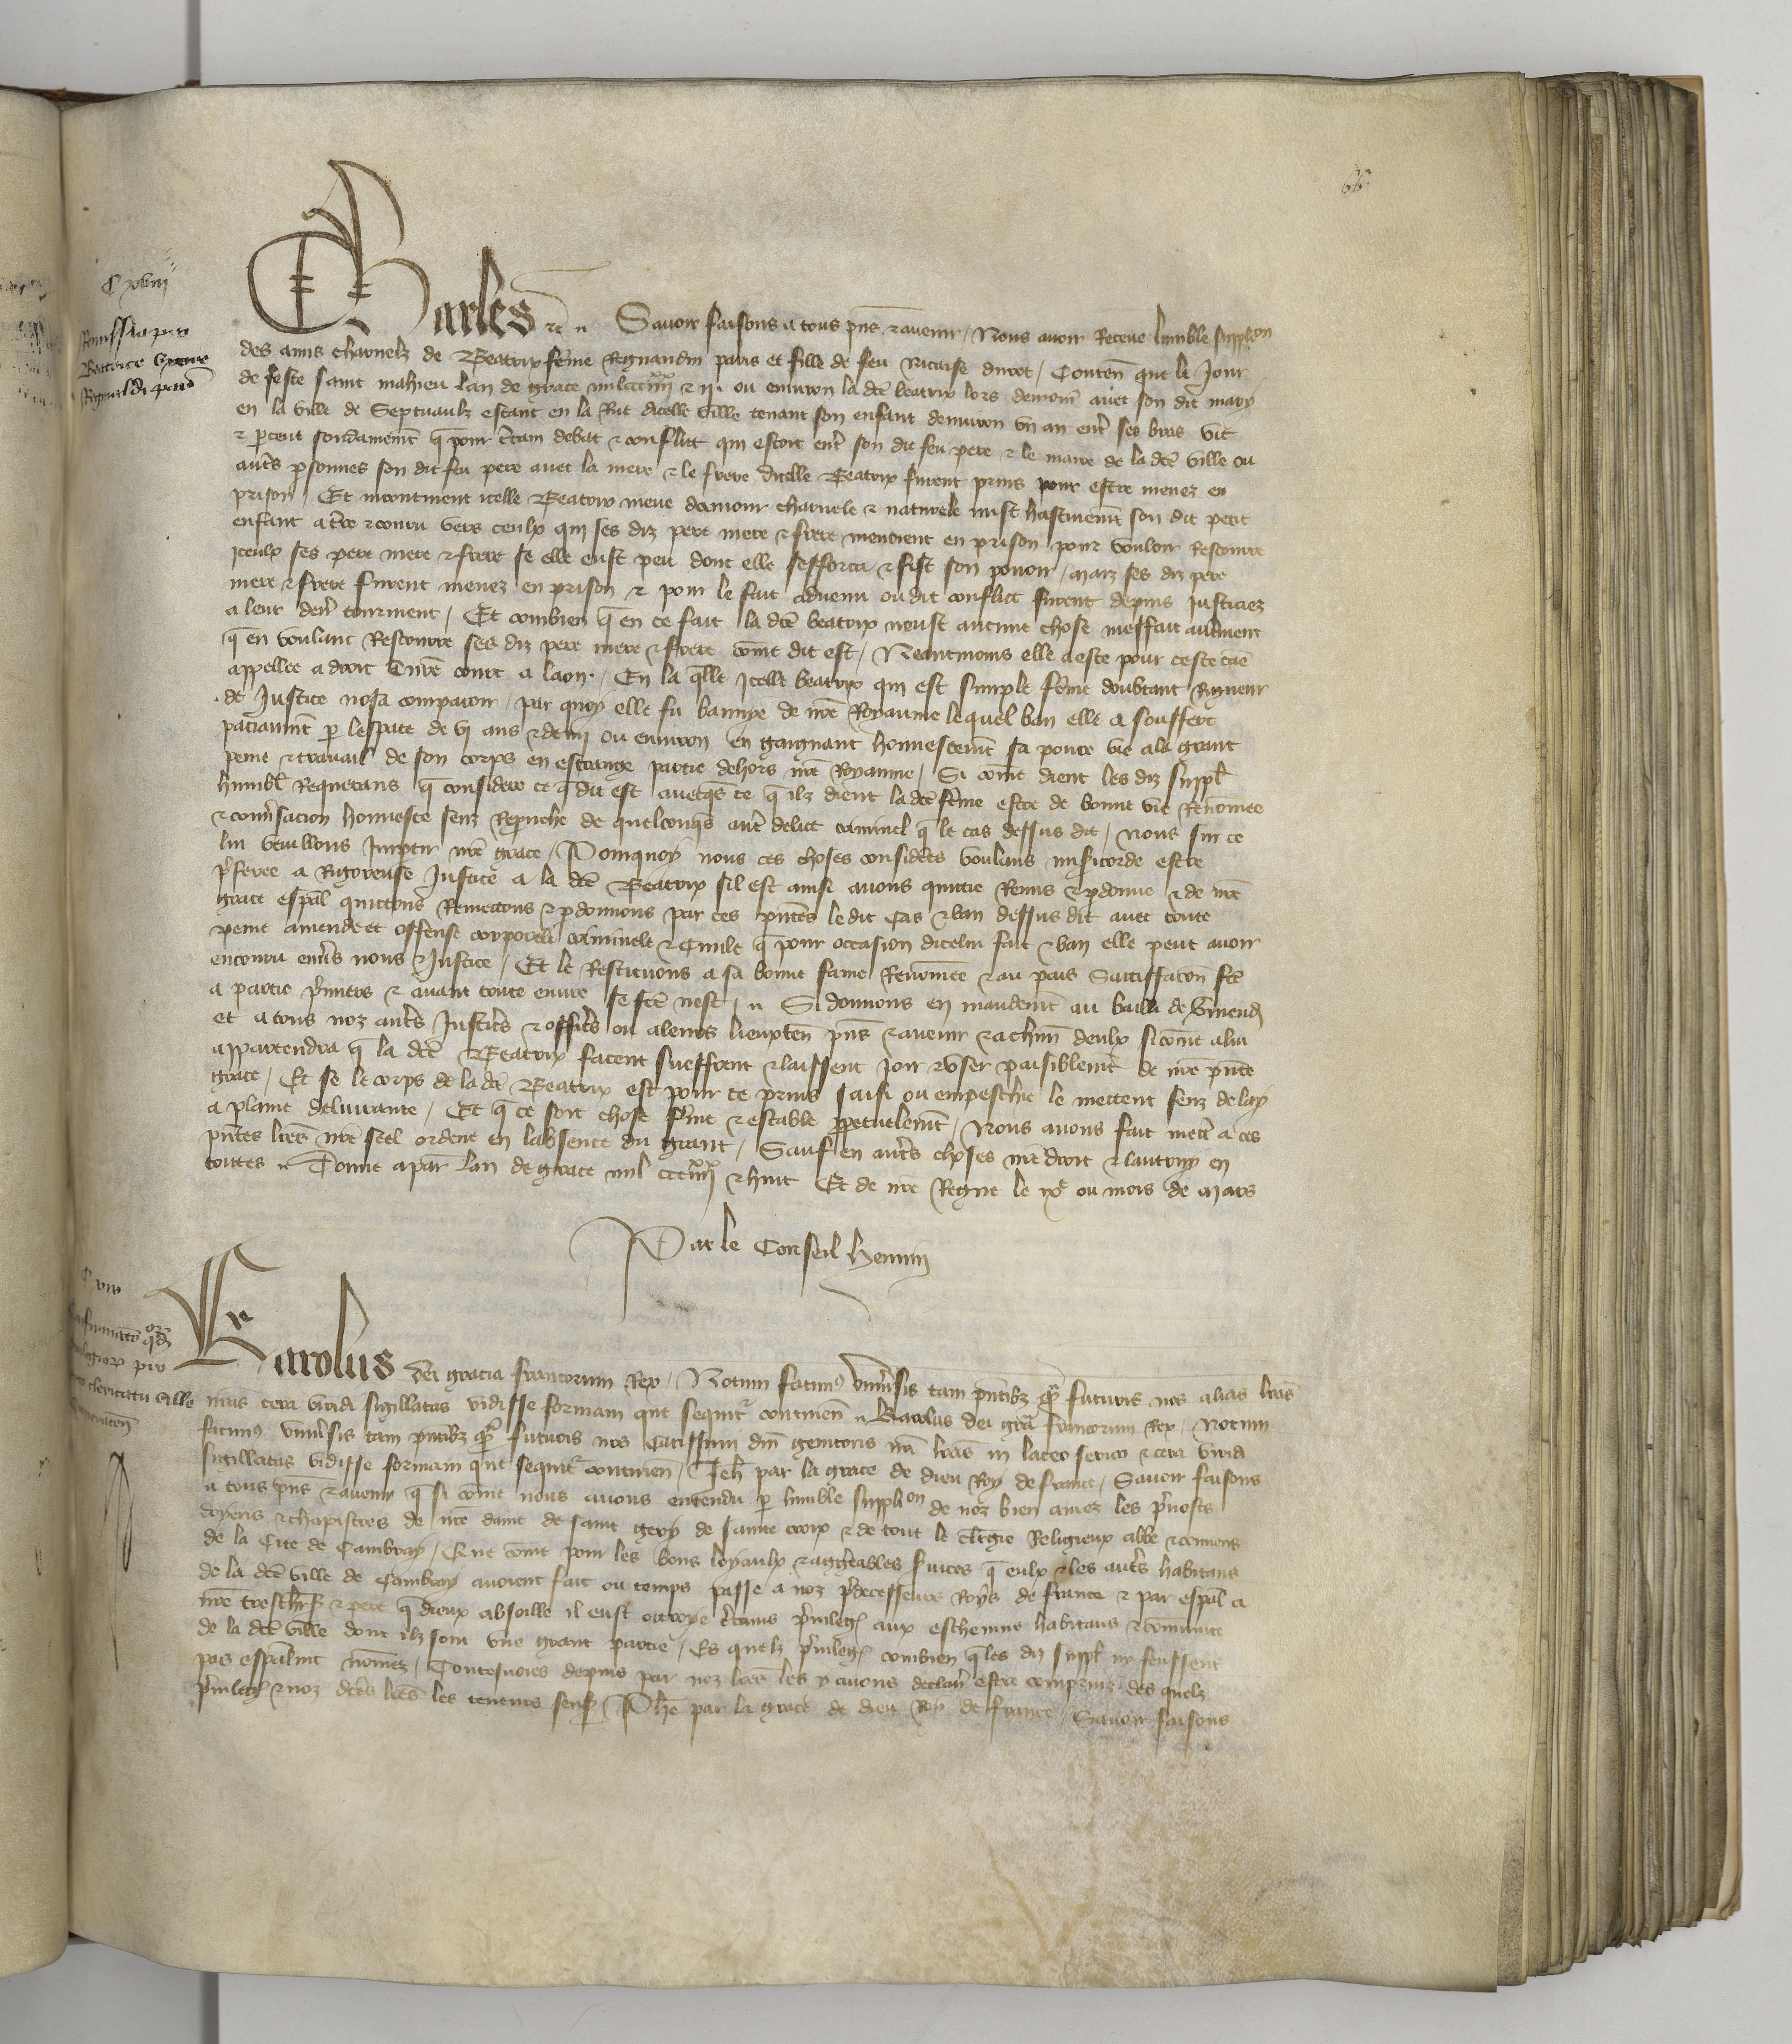 66
C xviii
Remissio pro
Beatrice uxore
Reginaldi paris
Charles etc. Savoir faisons a tous pns et avenir / Nous avoir Receue lumble supplon
des amis charnelz de Beatrix feme Regnaudin paris et fille de feu Nicaise / Conten que le Jour
de feste saint mahieu lan de grace mil ccc iiiixx et ii. ou environ la dce beatrix lors demour avec son dit mary
en la ville de Septvaulz estant en la Rue dicelle ville tenant son enfant denviron un an entr ses bras vit
et percut soudainemt q pour ctain debat et conflict qui estoit entr son dit feu pere et le maire de la dce ville ou
autrs psonnes son dit feu pere avec la mere et le frere dicelle Beatrix furent prins pour estre menez en
prison / Et incontinent icelle Beatrix meue damour charnele et naturele mist hastivemt son dit petit
enfant a tre et couru vers ceulx qui ses diz pere mere et frere menoient en prison pour vouloir Rescourre
Iceulx ses pere mere et frere se elle eust peu dont elle sefforca et fist son povoir / maiz ses diz pere
mere et frere furent menez en prison et pour le fait advenu oudit conflict furent depuis Justiciez
a leur denr tourment / Et combien q en ce fait la dce beatrix neust aucune chose meffait autrment
q en voulant Rescourre ses diz pere mere et frere come dit est / Neantmoins elle a este pour ceste cae
appellee a droit en nre court a laon. / En la qlle Icelle beatrix qui est simple feme doubtant Rigueur
de Justice nosa comparoir / par quoy elle fu bannye de nre Royaume lequel ban elle a souffert
paciaumt p lespace de vi ans et demi ou environ en gaignant honnestemt sa povre vie a la grant
peine et travail de son corps en estrange partie dehors nre Royaume / Si come dient les diz suppl
humbl Requerans q considere ce q dit est avecqs ce q ilz dient la dce feme estre de bonne vie Renomee
et convsacion honneste senz Reprouche de quelconqs autr delict criminel q le cas dessus dit / nous sur ce
lui vueillons Impartir nre grace / Pourquoy nous ces choses considees voulans misicorde estre
pferee a Rigoreuse Justice a la dce Beatrix sil est ainsi avons quicte Remis et pdonne et de nre
grace espal quictons Remectons et pdonnons par ces pntes le dit Cas et ban dessus dit avec toute
peine amende et offense corporele criminele et Civile q pour occasion dicelui fait et ban elle peut avoir
encouru envrs nous et Justice / Et le Restituons a sa bonne fame Renomee et au pais Satisfacon fce
a partie priere et avant toute euvre se fce nest. Si donnons en mandemt au bailli de vmend
et a tous noz autrs Justicrs et officrs ou a leurs lieuxten pns et avenir et a chun deulx si come a lui
appartendra q la dce Beatrix facent sueffrent et laissent Joir et user paisiblemt de nre pnte
grace / Et se le corps de la dce Beatrix est pour ce prins saisi ou empeschie le mectent senz delay
a plaine delivrance / Et q ce soit chose ferme et estable ppetuelemt / Nous avons fait mectr a ces
pntes lres nre seel ordene en labsence du grant / Sauf en autrs choses nre droit et lautruy en
toutes. Donne a par lan de grace mil ccc iiiixx et huit Et de nre Regne le ixe ou mois de mars
Par le Conseil hennin
C xix
Karolus dei gracia francorum Rex / Notum facim9 univsis tam pntibz qm futuris nos alias lras
nras cera viridi sigillatas vidisse formam que sequitr continen. Karolus dei gra francorum Rex / Notum
facim9 univsis tam pntibz qm futuris nos Carissimi dni genitoris nri lras in laceo serico et cera viridi
sigillatas vidisse formam que sequitr continen / Jeh par la grace de dieu Roy de france / Savoir faisons
a tous pns et avenir q si come nous avons entendu p humble supplion de noz bien amez les prvosts
doyens et chapistres de nre dame de saint gery de sainte croix et de tout le clergie Religieux abbe et convens
de la Cite de Cambray / Que come pour les bons loyaulx et aggreables svices q eulx et les autrs habitans
de la dce ville de Cambray avoient fait ou temps passe a noz predecesseurs Roys de france et par espal a
nre treschr sr et pere q dieux absoille il eust octroye ctains privileg aux eschevins habitans et comunite
de la dce ville dont ilz sont une grant partie / Es quelz privileg combien q les diz suppl ny feussent
pas espalmt nomez / Toutesvoies depuis par noz lres les y avons declair estre comprins des quelz
privileg et noz dces lres les teneurs sensr / Phe par la grace de dieu Roy de france Savoir faisons